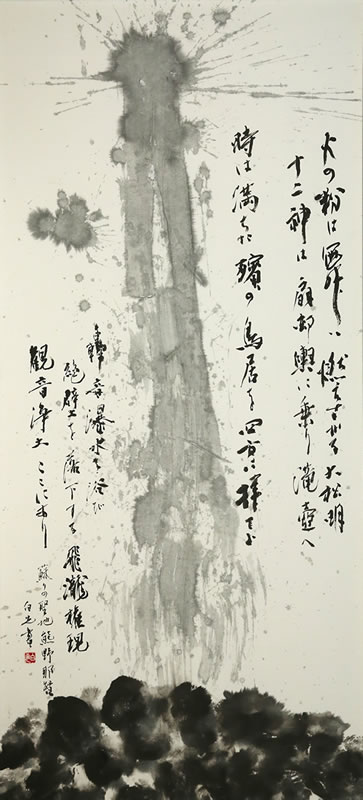 火の粉は
燃えすがる大松明
十二神は扇神輿に乗り滝壺へ
時は満ちた
の鳥居を四方に拝でよ
轟音瀑水を浴び
絶壁上を落下する飛瀧権現
観音浄土ここにあり
蘇りの聖地熊野那智
白